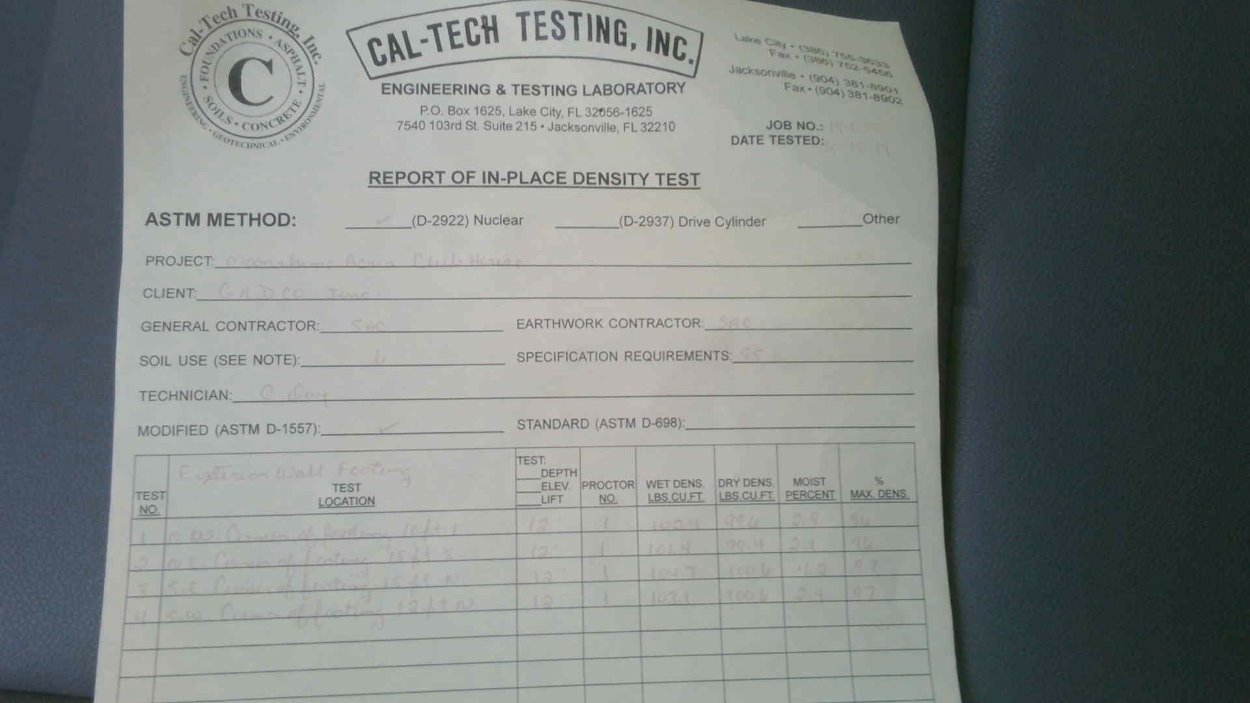 Cal-Tech Testing, Inc.
FOUNDATIONS • ASPHALT • CONCRETE • SOILS •
ENGINEERING • GEOTECHNICAL • ENVIRONMENTAL
C
CAL-TECH TESTING, INC.
ENGINEERING & TESTING LABORATORY
P.O. Box 1625, Lake City, FL 32056-1625
7540 103rd St. Suite 215 • Jacksonville, FL 32210
Lake City • (386) 755-3633
Fax • (386) 752-5456
Jacksonville • (904) 381-8901
Fax • (904) 381-8902
JOB NO.:
DATE TESTED:
REPORT OF IN-PLACE DENSITY TEST
ASTM METHOD: ✓ (D-2922) Nuclear (D-2937) Drive Cylinder Other
PROJECT: Club House
CLIENT: GADCO Inc.
GENERAL CONTRACTOR: EARTHWORK CONTRACTOR:
SOIL USE (SEE NOTE): SPECIFICATION REQUIREMENTS: 95
TECHNICIAN: C. Day
MODIFIED (ASTM D-1557): ✓ STANDARD (ASTM D-698):
Exterior Wall Footing
TEST NO. TEST LOCATION TEST: DEPTH ELEV. LIFT PROCTOR NO. WET DENS. LBS.CU.FT. DRY DENS. LBS.CU.FT. MOIST PERCENT % MAX. DENS.
1 Corner of footing 12 1
2 Corner of footing 15 ft S 12 1 101.4 99.4 2.1 96
3 S.E. Corner of footing 15 ft N 12 1 104.7 100.6 97
4 S.W. Corner of footing 12 ft N 12 1 103.1 100.6 2.4 97